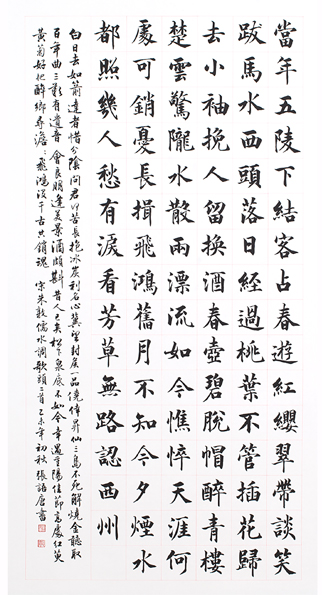 當年五陵下結客占春遊紅纓翠帶談笑
跋馬水西頭落日經過桃葉不管插花歸
去小袖挽人留換酒春壺碧脫帽醉青樓
楚雲驚隴水散兩漂流如今憔悴天涯何
處可銷憂長揖飛鴻舊月不知今夕煙水
都照幾人愁有淚看芳草無路認西州
白日去如箭達者惜分陰問君何苦長抱冰炭利名心冀望封侯一品僥倖昇仙三島不死解燒金聽取
百年曲三歎有遺音會良朋逢美景酒頻斟昔人已矣松下泉底不如今幸遇重陽佳節高處紅萸
黃菊好把醉鄉尋澹々飛鴻沒千古共銷魂 宋朱敦儒水調歌頭二首乙未年初秋張語唐書